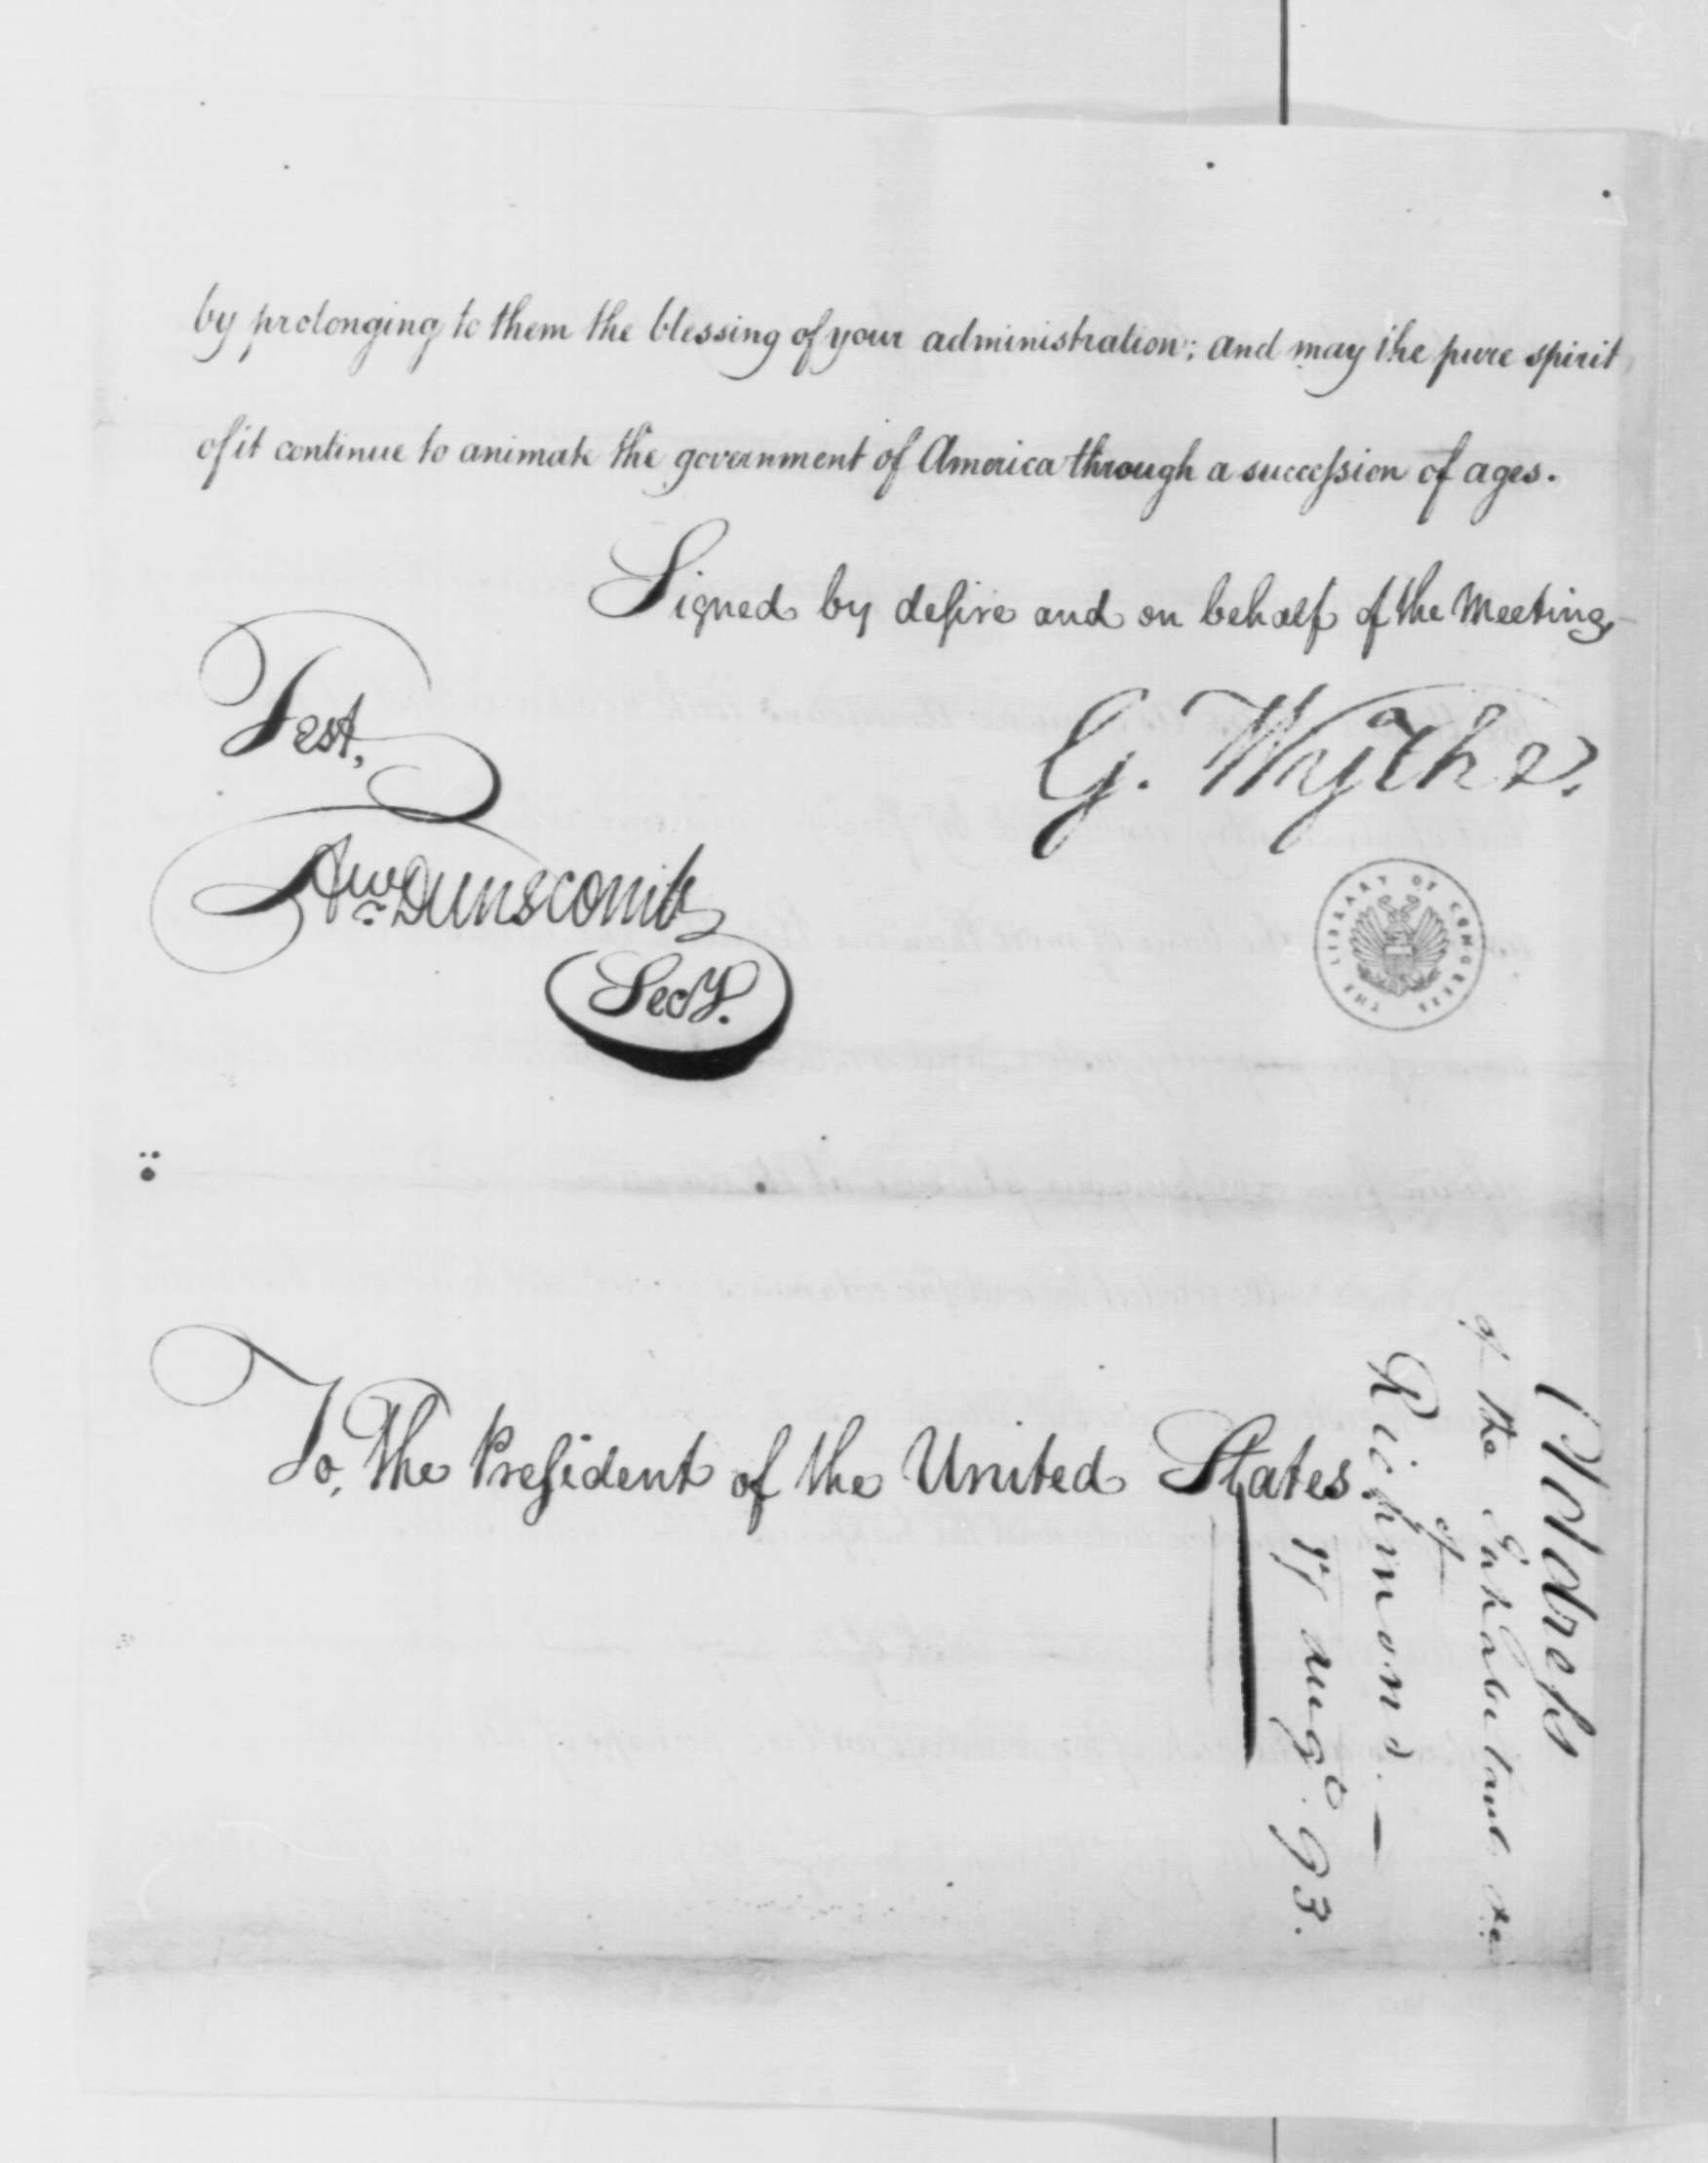 by prolonging to them the blessing of your administration; and may the pure spirit
of it continue to animate the government of America through a succeſsion of ages.
Signed by deſire and on behalf of the Meeting,
Test,
G. Wythe.
Aw. Dunscomb
Secy.
THE LIBRARY OF CONGRESS
To, The Preſident of the United States.
Addreſs
of the Inhabitants
of
Richmond.—
17 Augo. 93.